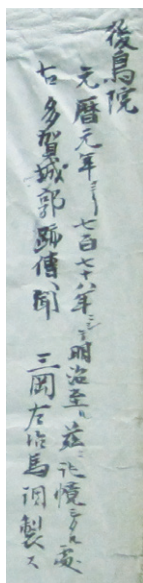 後鳥院
元暦元年ヨリ七百七十八年ニシテ明治至ル茲ニ記憶シタル処
古多賀城郭跡傳聞 三岡左治馬調製ス